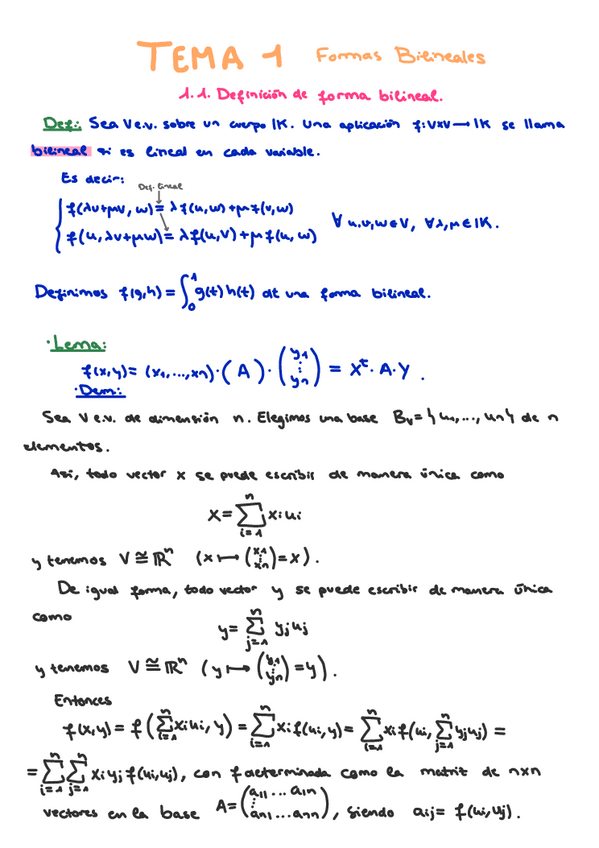 TEMA 1 Formas Bilineales
1.1. Definición de forma bilineal.
Def: Sea V e.v. sobre un cuerpo IK. Una aplicación f: V×V → IK se llama
bilineal si es lineal en cada variable.
Es decir:
Def. lineal
f(λu+μv, w) = λ f(u,w) + μ f(v,w)
f(u, λv+μw) = λ f(u,v) + μ f(u,w) ∀ u,v,w ∈ V, ∀ λ,μ ∈ IK.
Definimos f(g,h) = ∫₀¹ g(t) h(t) dt una forma bilineal.
· Lema:
f(x,y) = (x₁,...,xn) · (A) · (y₁ ⋮ yn) = Xᵗ · A · Y .
· Dem:
Sea V e.v. de dimensión n. Elegimos una base Bᵥ = {u₁,...,un} de n
elementos.
Así, todo vector x se puede escribir de manera única como
x = ∑ⁿᵢ₌₁ xᵢuᵢ
y tenemos V ≅ ℝⁿ (x ↦ (x₁ ⋮ xn) = x).
De igual forma, todo vector y se puede escribir de manera única
como
y = ∑ⁿⱼ₌₁ yⱼuⱼ
y tenemos V ≅ ℝⁿ (y ↦ (y₁ ⋮ yn) = y).
Entonces
f(x,y) = f(∑ⁿᵢ₌₁ xᵢuᵢ, y) = ∑ⁿᵢ₌₁ xᵢ f(uᵢ, y) = ∑ⁿᵢ₌₁ xᵢ f(uᵢ, ∑ⁿⱼ₌₁ yⱼuⱼ) =
= ∑ⁿᵢ₌₁ ∑ⁿⱼ₌₁ xᵢyⱼ f(uᵢ,uⱼ), con f determinada como la matriz de n×n
vectores en la base A = (a₁₁ ... a₁n ⋮ an₁ ... ann), siendo aᵢⱼ = f(uᵢ,uⱼ).